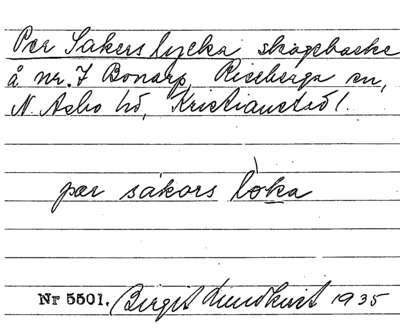 Per Sakers lycka skogsbacke
å nr. 7 Bonarp, Riseberga sn,
N. Asbo hd, Kristianstad l.
pær sakors loka
Nr 5501. Birgit Lundkvist 1935